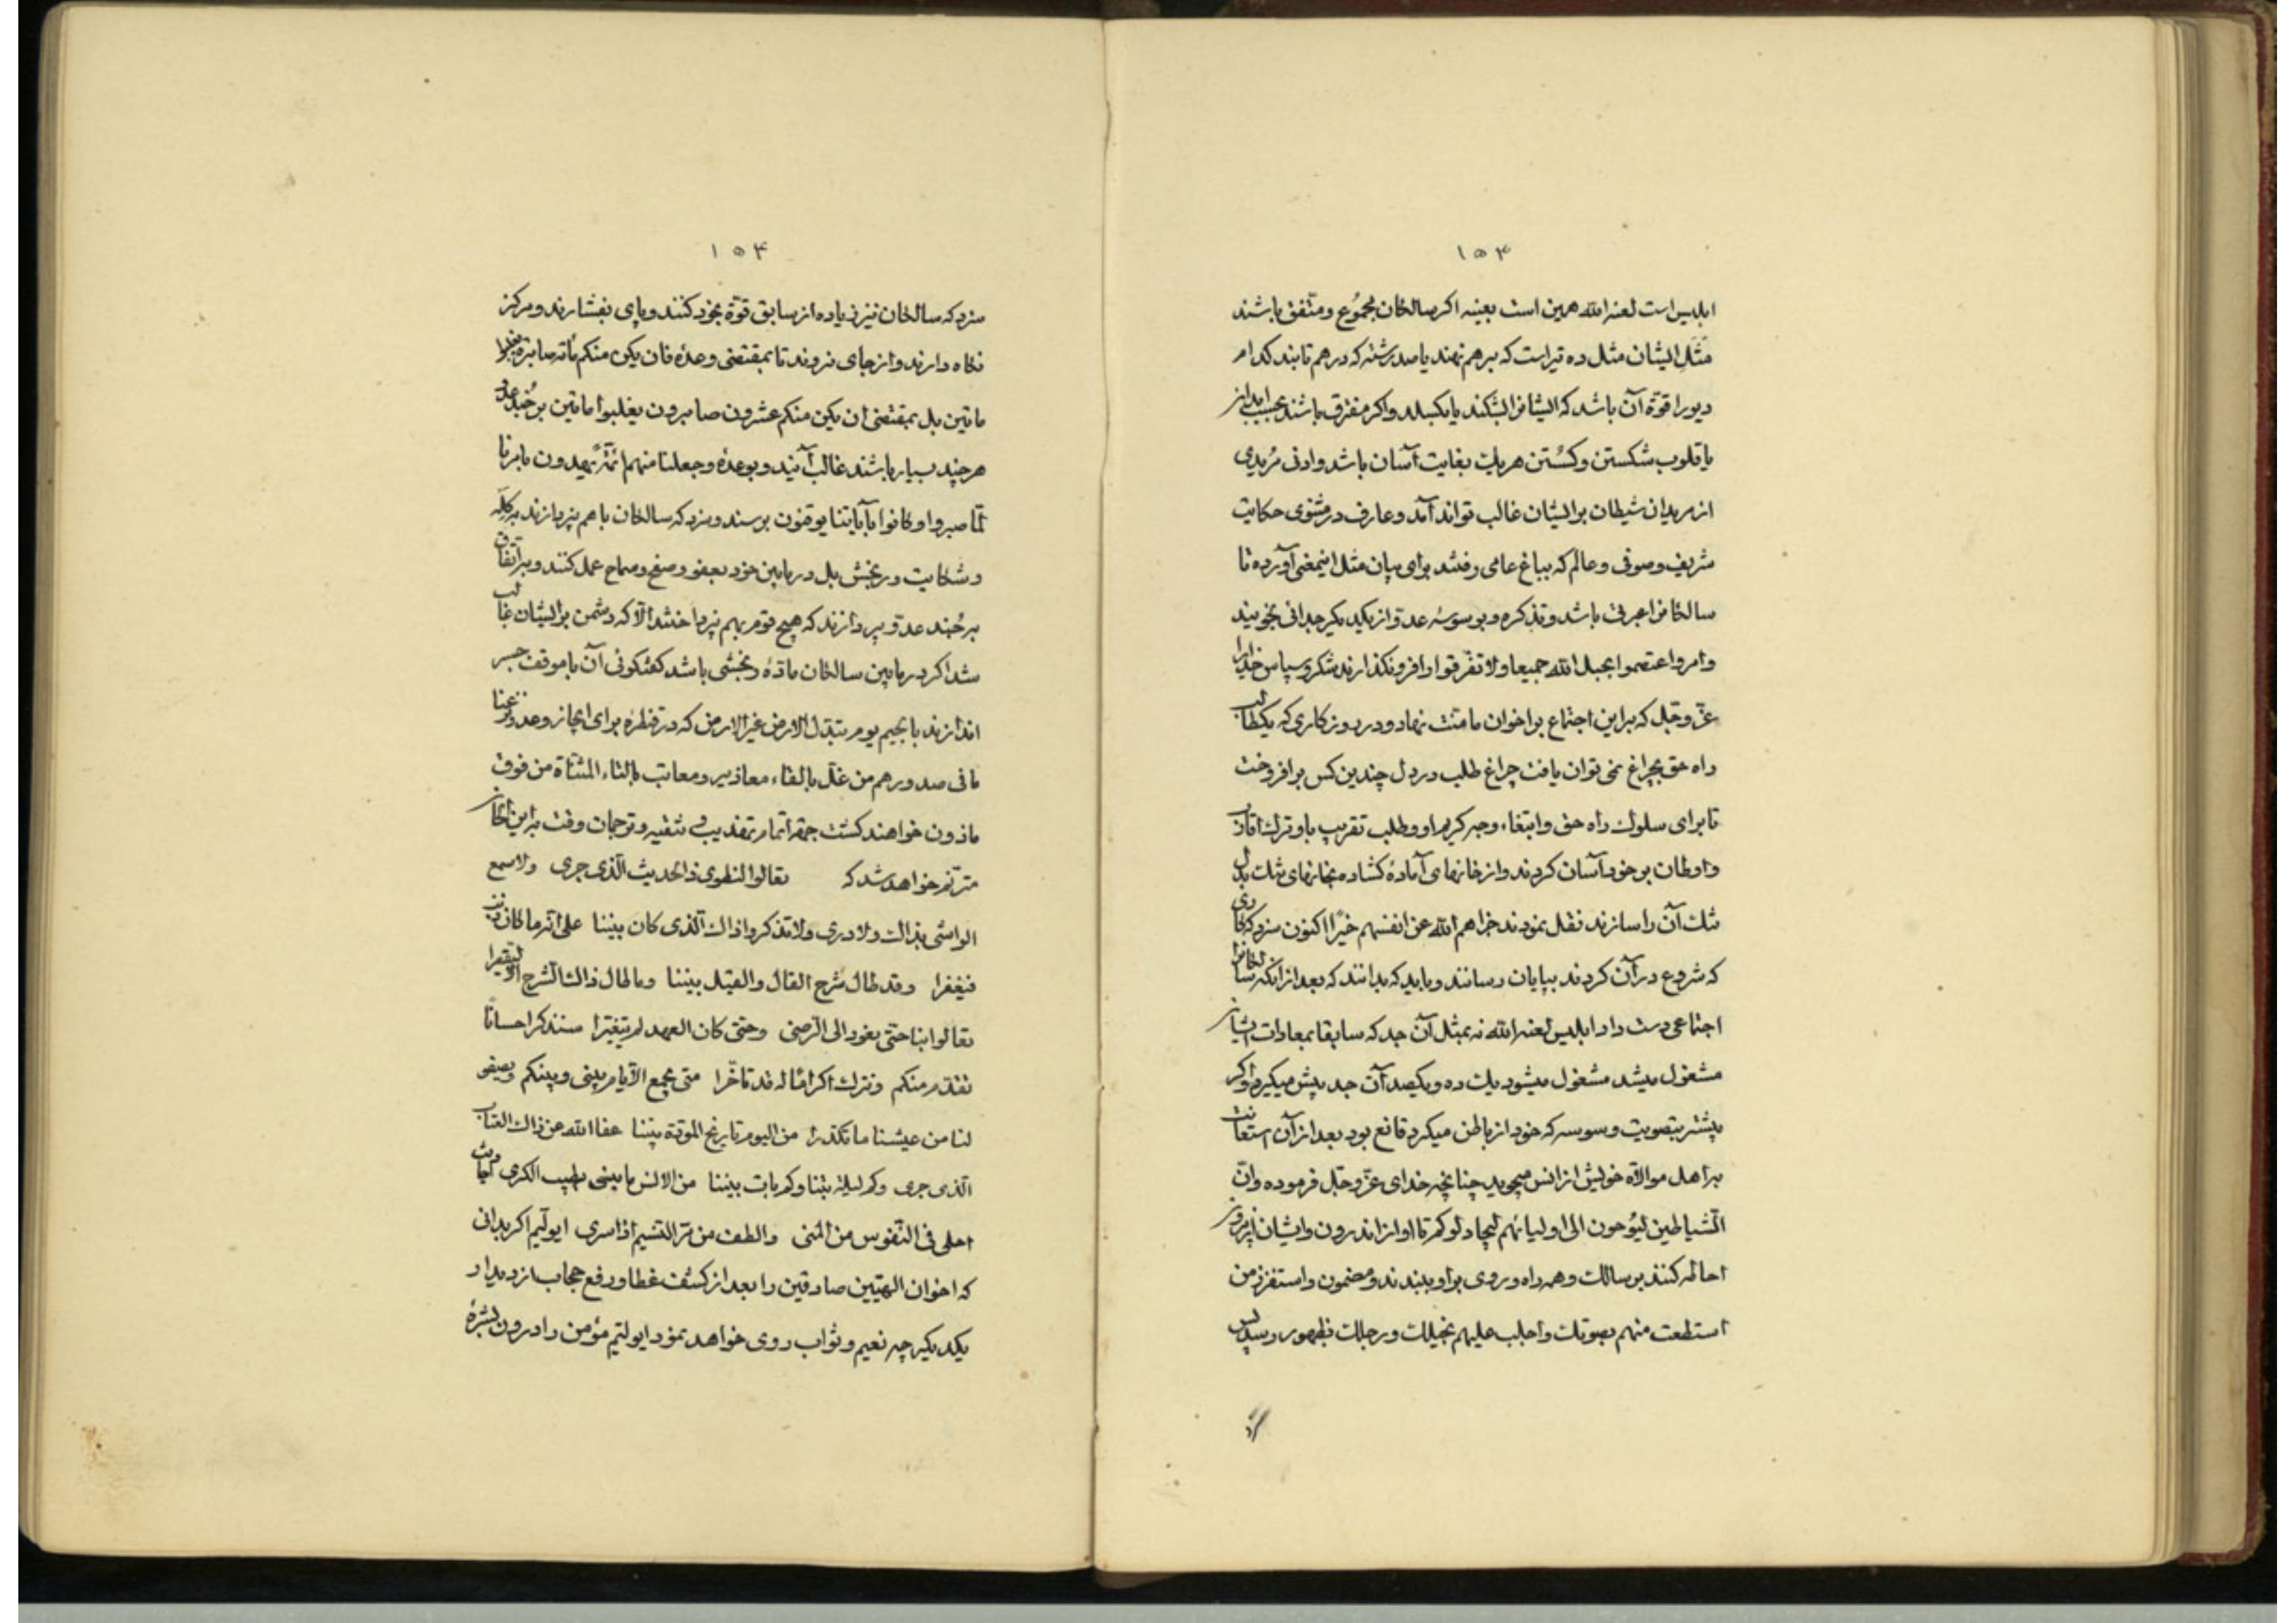 ۱۵۳
ابلیس است لعنه الله همین است بعینه اکر سالکان مجموع و متفق باشند
مثل ایشان مثل ده تیر است که برهم نهند یا صد رشته که درهم تابند کدام
دیو را قوة آن باشد که ایشانرا بشکند یا بکسلد و اکر متفرق باشند
یا قلوب شکستن و کسستن هریک بغایت آسان باشد و ادنی مریدی
از مریدان شیطان بر ایشان غالب تواند آمد و عارف در مثنوی حکایت
شریف و صوفی و عالم که بباغ عامی رفتند برای بیان مثل اینمعنی آورده تا
سالکانرا عبرتی باشد و تذکره و بوسوسه عدو از یکدیکر جدائی نجویند
و امر واعتصموا بحبل الله جمیعا ولا تفرقوا را فرو نکذارند شکر و سپاس خدایرا
عز و جل که براین اجتماع بر اخوان ما منت نهاد و در روزکاری که یکطالب
راه حق بچراغ نمی توان یافت چراغ طلب در دل چندین کس برافروخت
تا برای سلوک راه حق و ابتغاء وجه کریم او و طلب تقریب باو ترک اقارب
و اوطان بر خود آسان کردند و از خانهای آماده کشاده بخانهای تنک بدل
تنک آن را سازند نقل نمودند جزاهم الله عن انفسهم خیرا اکنون سزد که کاری
که شروع در آن کردند بپایان رسانند و باید که بدانند که بعد از انکه سالکانرا
اجتماعی دست داد ابلیس لعنه الله نه بمثل آن جد که سابقا بمعادات ایشان
مشغول میشد مشغول میشود یک ده و یکصد آن جد پیش میکیرد و اکر
پیشتر بتصویت و وسوسه که خود از باطن میکرد قانع بود بعد از آن استعانت
براهل موالاة خویش از انس میجوید چنانچه خدای عز و جل فرموده وان
الشیاطین لیوحون الی اولیائهم لیجادلوکم تا او از اندرون و ایشان از برون
احاطه کنند بر سالک و همه راه و روی بر او ببندند و مضمون واستفزز من
استطعت منهم بصوتک واجلب علیهم بخیلک ورجلک بظهور رسد پس
۱۵۴
سزد که سالکان نیز زیاده از سابق قوة بخود کنند و پای بفشارند و مرکز
نکاه دارند و از جای نروند تا بمقتضی وعده فان یکن منکم مأته صابرة یغلبوا
ماتین بل بمقتضی ان یکن منکم عشرون صابرون یغلبوا ماتین بر جند عدو
هرچند بسیار باشند غالب آیند و بوعده وجعلنا منهم ائمة یهدون بامرنا
لما صبروا وکانوا بآیاتنا یوقنون برسند و سزد که سالکان باهم نپردازند بر کله
و شکایت و رنجش بل در مابین خود بعفو و صفح و سماح عمل کنند و بر اتفاق
بر جند عدو پردازند که هیچ قوم بهم نپرداختند الا که دشمن بر ایشان غالب
شد اکر در مابین سالکان ماده رنجشی باشد کفتکوئی آن با موقف جسر
اندازند یا بجیم یوم تبدل الارض غیر الارض که در قنطره برای انجاز وعد و نزعنا
مافی صدورهم من غل بالقاء معاذیر و معاتب بالتاء المثناة من فوق
ماذون خواهند کشت جهة اتمام تهذیب و تنقیه و ترجمان وقت براین
مترنم خواهد شد که تعالوا لنطوی ذا الحدیث الذی جری ولا سمع
الواشی بذاک ولا دری ولا تذکروا ذاک الذی کان بیننا علی انه ما کان
فیغفرا وقد طال شرح القال والقیل بیننا وما طال ذاک الشرح الا لیقصرا
تعالوا بنا حتی نعود الی الرضی وحتی کان العهد لم یتغیرا سنذکر احسانا
تقدم منکم ونترک اکراما له قد تأخرا متی یجمع الایام بینی وبینکم ویصفو
لنا من عیشنا ما تکدرا من الیوم تاریخ المودة بیننا عفا الله عن ذاک العتاب
الذی جری وکم لیلة بتنا وکم بات بیننا من الانس ما ینسی بطیب الکری
احلی فی النفوس من المنی والطف من مر النسیم اذا سری ایولیم اکر بدانی
که اخوان الهیین صادقین را بعد از کشف غطا و رفع حجاب از دیدار
یکدیکر چه نعیم و ثواب روی خواهد نمود ایولیم مؤمن را درون بشره